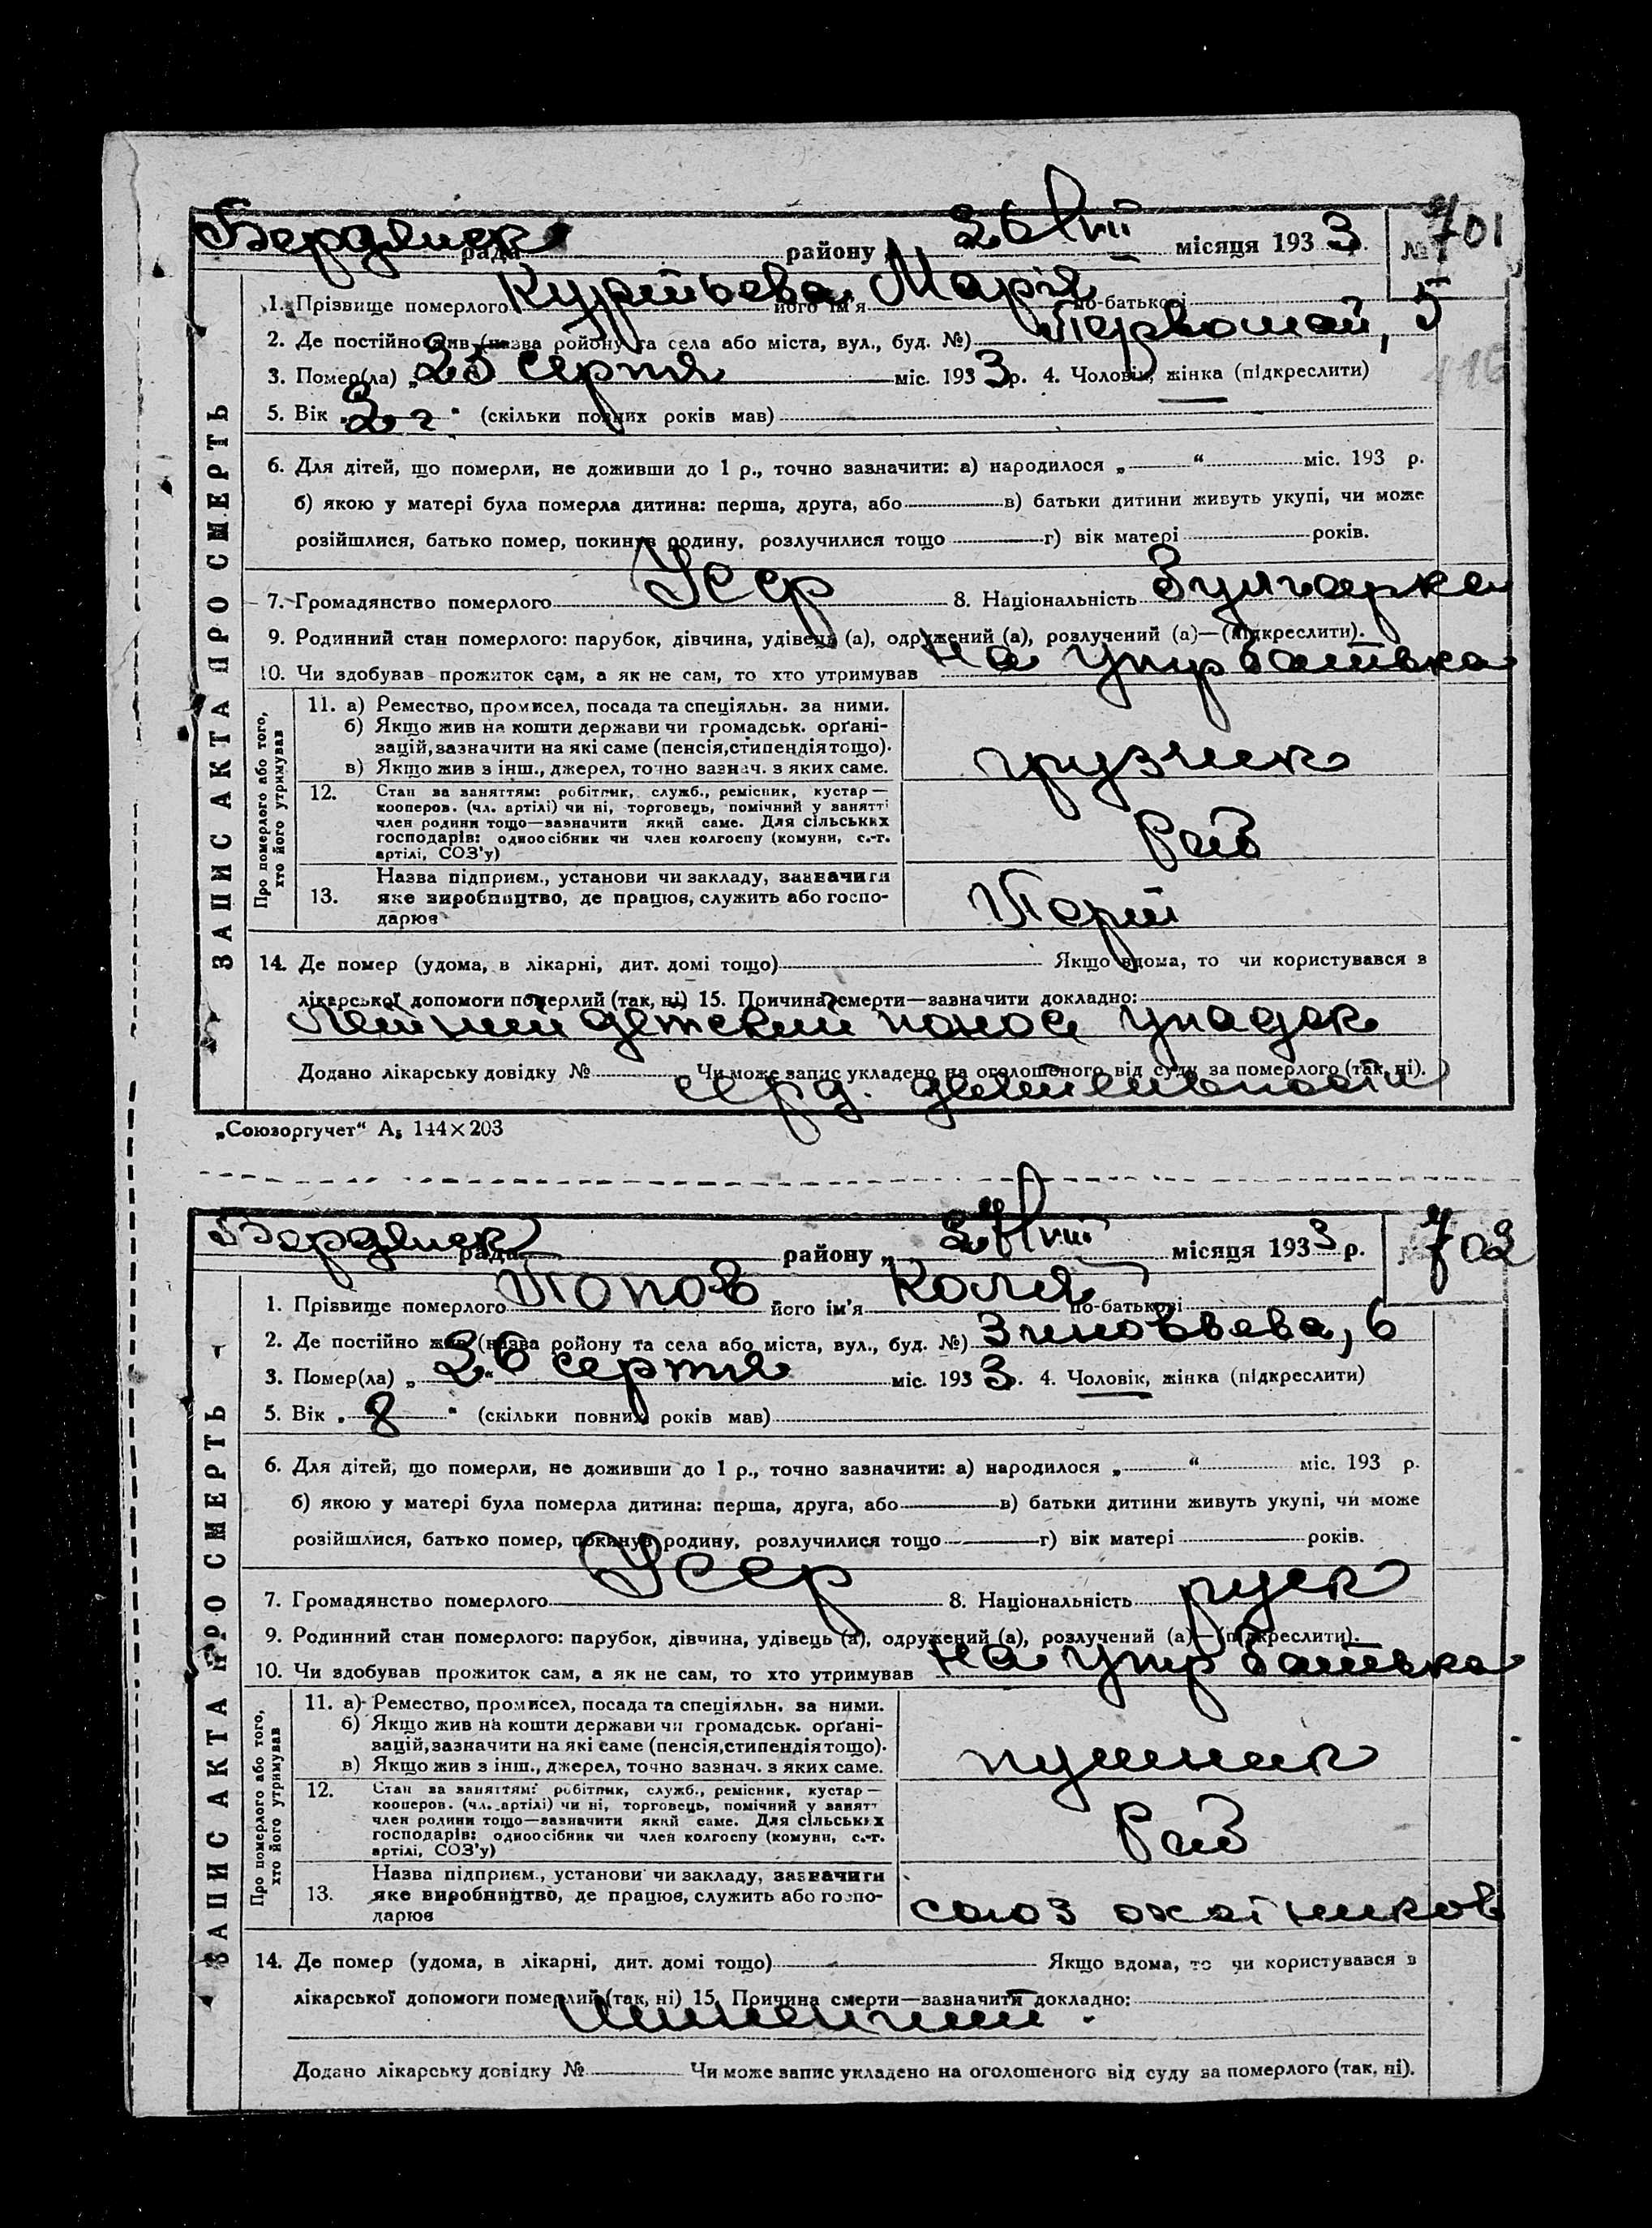 Бердянск рада району „ 26/VIII місяця 1933 р. № 701
1. Прізвище померлого його ім'я Марія по-батькові
2. Де постійно жив (назва ройону та села або міста, вул., буд. №) Первомай, 5
3. Помер(ла) „ 25 серпня міс. 1933 р. 4. Чоловік, жінка (підкреслити)
5. Вік „ 2 г “ (скільки повних років мав)
6. Для дітей, що померли, не доживши до 1 р., точно зазначити: а) народилося „ “ міс. 193 р.
б) якою у матері була померла дитина: перша, друга, або в) батьки дитини живуть укупі, чи може
розійшлися, батько помер, покинув родину, розлучилися тощо г) вік матері років.
7. Громадянство померлого Усср 8. Національність
9. Родинний стан померлого: парубок, дівчина, удівець (а), одружений (а), розлучений (а)—(підкреслити).
10. Чи здобував прожиток сам, а як не сам, то хто утримував на утр батька
ЗАПИС АКТА ПРО СМЕРТЬ
Про померлого або того,
хто його утримував
11. а) Ремество, промисел, посада та спеціяльн. за ними.
б) Якщо жив на кошти держави чи громадськ. орґані-
зацій, зазначити на які саме (пенсія, стипендія тощо).
в) Якщо жив з інш., джерел, точно зазнач. з яких саме.
грузчик
12. Стан за заняттям: робітник, служб., ремісник, кустар—
кооперов. (чл. артілі) чи ні, торговець, помічний у занятті
член родини тощо—зазначити який саме. Для сільських
господарів: одноосібник чи член колгоспу (комуни, с.-г.
артілі, СОЗ'у)
Раб
13. Назва підприєм., установи чи закладу, зазначити
яке виробництво, де працює, служить або госпо-
дарює
Порт
14. Де помер (удома, в лікарні, дит. домі тощо) Якщо вдома, то чи користувався з
лікарської допомоги померлий (так, ні) 15. Причина смерти—зазначити докладно:
Летний детский понос упадок
Додано лікарську довідку № Чи може запис укладено на оголошеного від суду за померлого (так, ні).
серд. деятельности
„Союзоргучет“ А₅ 144×203
Бердянск рада району „ /VIII місяця 1933 р. № 702
1. Прізвище померлого Попов його ім'я Коля по-батькові
2. Де постійно жив (назва ройону та села або міста, вул., буд. №) Зиновьева, 6
3. Помер(ла) „ 26 серпня міс. 1933 р. 4. Чоловік, жінка (підкреслити)
5. Вік „ 8 “ (скільки повних років мав)
6. Для дітей, що померли, не доживши до 1 р., точно зазначити: а) народилося „ “ міс. 193 р.
б) якою у матері була померла дитина: перша, друга, або в) батьки дитини живуть укупі, чи може
розійшлися, батько помер, покинув родину, розлучилися тощо г) вік матері років.
7. Громадянство померлого Усср 8. Національність руск
9. Родинний стан померлого: парубок, дівчина, удівець (а), одружений (а), розлучений (а)—(підкреслити).
10. Чи здобував прожиток сам, а як не сам, то хто утримував на утр батька
ЗАПИС АКТА ПРО СМЕРТЬ
Про померлого або того,
хто його утримував
11. а) Ремество, промисел, посада та спеціяльн. за ними.
б) Якщо жив на кошти держави чи громадськ. орґані-
зацій, зазначити на які саме (пенсія, стипендія тощо).
в) Якщо жив з інш., джерел, точно зазнач. з яких саме.
пушник
12. Стан за заняттям: робітник, служб., ремісник, кустар—
кооперов. (чл. артілі) чи ні, торговець, помічний у занятт
член родини тощо—зазначити який саме. Для сільських
господарів: одноосібник чи член колгоспу (комуни, с.-г.
артілі, СОЗ'у)
Раб
13. Назва підприєм., установи чи закладу, зазначити
яке виробництво, де працює, служить або госпо-
дарює
союз охотников
14. Де помер (удома, в лікарні, дит. домі тощо) Якщо вдома, то чи користувався з
лікарської допомоги померлий (так, ні) 15. Причина смерти—зазначити докладно:
Додано лікарську довідку № Чи може запис укладено на оголошеного від суду за померлого (так, ні).